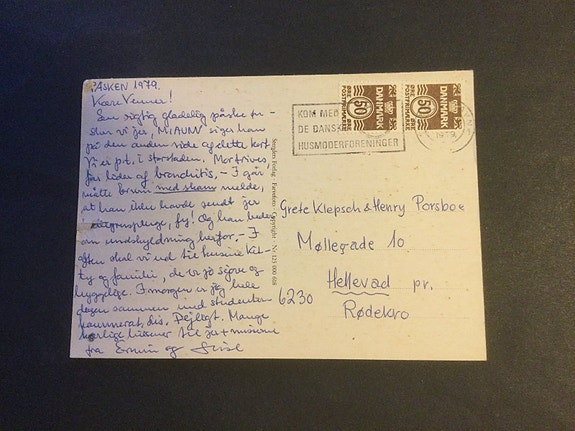 PÅSKEN 1979.
Kære Venner!
En rigtig glædelig påske øn-
sker vi jer, "MIAUW" siger han
på den anden side af dette kort.
Vi er p.t. i storskolen. Mor trives,
far lider af bronchitis, – I går
måtte med skam melde,
at han ikke havde sendt jer
fy! Og han beder
om undskyldning herfor. – I
aften skal vi ud til kusine Kit-
ty og familie, de er jo sjove og
hyggelige. I morgen er jeg hele
dagen sammen med studenter-
kammerat, dis. Dejligt. Mange
kærlige hilsener til jer + misserne
fra og
Stenders Forlag - Farvefoto - Copyright Nr. 125 000 618
KOM MED
DE DANSKE
HUSMODERFORENINGER
DANMARK
50
ØRE
POSTFRIMÆRKE
DANMARK
50
ØRE
POSTFRIMÆRKE
Grete Klepsch & Henry Porsboe
Møllegade 10
Hellevad pr.
6230 Rødekro